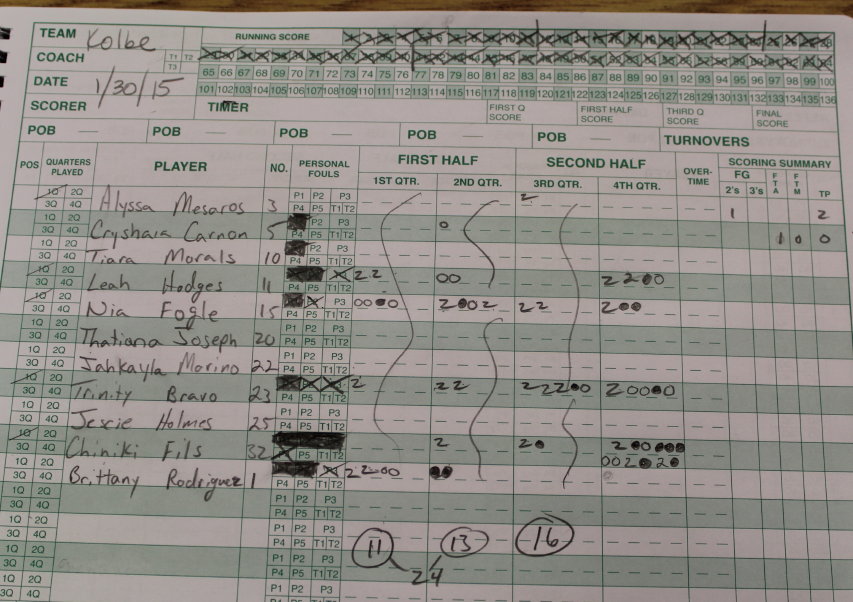 TEAM Kolbe RUNNING SCORE
COACH T1 T2
T3 65 66 67 68 69 70 71 72 73 74 75 76 77 78 79 80 81 82 83 84 85 86 87 88 89 90 91 92 93 94 95 96 97 98 99 100
DATE 1/30/15 101 102 103 104 105 106 107 108 109 110 111 112 113 114 115 116 117 118 119 120 121 122 123 124 125 126 127 128 129 130 131 132 133 134 135 136
SCORER TIMER FIRST Q SCORE FIRST HALF SCORE THIRD Q SCORE FINAL SCORE
POB — POB — POB — POB — POB — TURNOVERS
POS QUARTERS PLAYED PLAYER NO. PERSONAL FOULS FIRST HALF SECOND HALF OVER-TIME SCORING SUMMARY
1ST QTR. 2ND QTR. 3RD QTR. 4TH QTR. FG 2's 3's FTA FTM TP
1Q 2Q 3Q 4Q Alyssa Mesaros 3 P1 P2 P3 P4 P5 T1 T2 2 1 2
1Q 2Q 3Q 4Q Cryshara Carnon 5 P2 P3 P4 P5 T1 T2 0 1 0 0
1Q 2Q 3Q 4Q Tiara Morals 10 P2 P3 P4 P5 T1 T2
1Q 2Q 3Q 4Q Leah Hodges 11 P4 P5 T1 T2 22 00 2200
1Q 2Q 3Q 4Q Nia Fogle 15 P3 P4 P5 T1 T2 0000 2002 22 200
1Q 2Q 3Q 4Q Thatiana Joseph 20 P1 P2 P3 P4 P5 T1 T2
1Q 2Q 3Q 4Q Jahkayla Morino 22 P1 P2 P3 P4 P5 T1 T2
1Q 2Q 3Q 4Q Trinity Bravo 23 P4 P5 T1 T2 2 22 22200 20000
1Q 2Q 3Q 4Q Jescie Holmes 25 P1 P2 P3 P4 P5 T1 T2
1Q 2Q 3Q 4Q Chiniki Fils 32 P5 T1 T2 2 20 200000
002020
1Q 2Q 3Q 4Q Brittany Rodriguez 1 P4 P5 T1 T2 2200 00
1Q 2Q 3Q 4Q P1 P2 P3 P4 P5 T1 T2
1Q 2Q 3Q 4Q P1 P2 P3 P4 P5 T1 T2 11 13 16
1Q 2Q 3Q 4Q P1 P2 P3 P4 P5 T1 T2 24
1Q 2Q 3Q 4Q P1 P2 P3